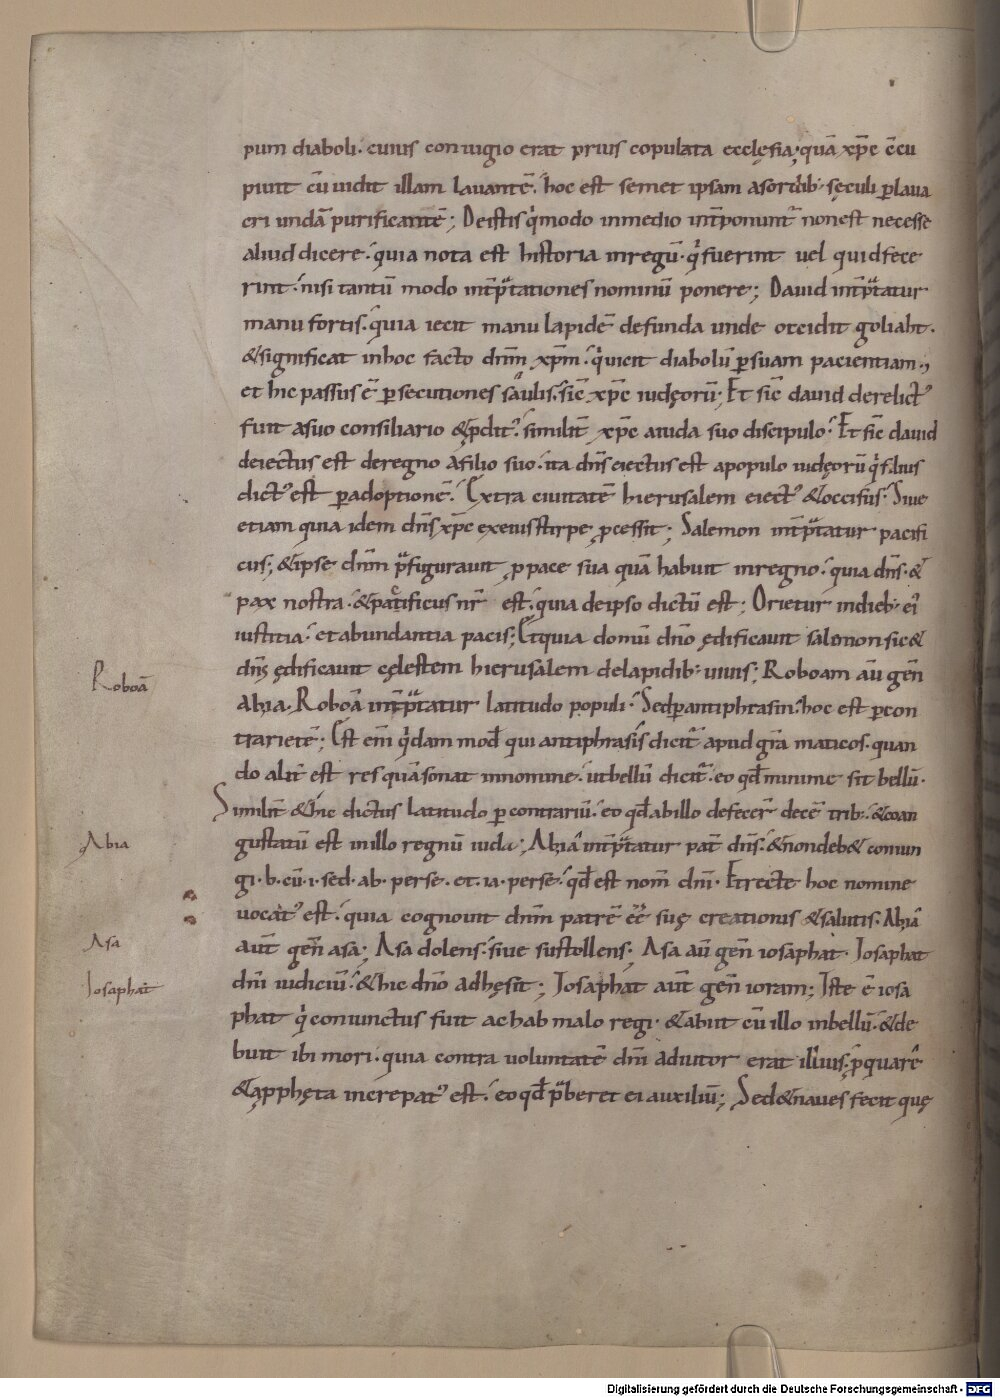 pum diaboli. cuius coniugio erat prius copulata ecclęsia; quā xp̄c c̄cu
piuit cū uidit illam lauantē. hoc est semet ipsam asordib; sęculi plaua
cri undā purificantē; Deistis q̓modo inmedio int̄ponunt᷑ nonest necesse
aliud dicere. quia nota est historia inregū. q̓ fuerint uel quidfece
rint. nisi tantū modo int̄p̄tationes nominū ponere; Dauid int̄p̄tatur
manu fortis. quia iecit manu lapidē defunda unde occidit goliaht.
&significat inhoc facto dn̄m xp̄m. q̓ uicit diabolū psuam pacientiam;
et hic passus ē psecutiones saulis. sic̄ xp̄c iudęorū; Et sic̄ dauid derelict᷒
fuit asuo consiliario &pdit᷒. similit̄ xp̄c aiuda suo discipulo. Et sic̄ dauid
deiectus est deregno afilio suo. ita dn̄s eiectus est apopulo iudęorū q̓ filius
dict᷒ est padoptionē. Extra ciuitatē hierusalem eiect᷒ &occisus. Siue
etiam quia idem dn̄s xp̄c exeius stirpe pcessit; Salemon int̄p̄tatur pacifi
cus; &ipse dn̄m p̄figurauit ppace sua quā habuit inregno. quia dn̄s &
pax nostra. &pacificus nr̄ est. quia deipso dictū est; Orietur indieb; ei᷒
iustitia. et abundantia pacis; Etquia domū dn̄o ędificauit salemon sic&
dn̄s ędificauit cęlestem hierusalem delapidib; uiuis; Roboam aū gen̄
Abia. Roboā int̄p̄tatur latitudo populi. Sedpantiphrasin. hoc est pcon
trarietē; Est em̄ q̓dam mod̄ qui antiphrasis dicit᷑ apud grāmaticos. quan
do alit̄ est res quā sonat innomine. ut bellū dicit᷑. eo qd̄ minime sit bellū.
Similit̄ &hic dictus latitudo pcontrariū. eo qd̄ abillo defecer̄ decē trib; &coan
gustatū est inillo regnū iuda; Abia int̄p̄tatur pat̄ dn̄s. &nondeb& coniun
gi. b. cū. i. sed. ab. perse. et. ia. perse. qd̄ est nom̄ dn̄i. Etrecte hoc nomine
uocat᷒ est. quia cognouit dn̄m patrē ēē suę creationis &salutis. Abia
aut̄ gen̄ asa; Asa dolens. siue sustollens; Asa aū gen̄ iosaphat. Iosaphat
dn̄i iudiciū. &hic dn̄o adhęsit; Iosaphat aut̄ gen̄ ioram; Iste ē iosa
phat q̓ coniunctus fuit achab malo regi. &abiit cū illo inbellū. &de
buit ibi mori. quia contra uoluntatē dn̄i adiutor erat illius. 
&apphęta increpat᷒ est. eo qd̄ p̄beret ei auxiliū; Sed&naues fecit quę
Roboā
Abia
Asa
Iosaphat
Digitalisierung gefördert durch die Deutsche Forschungsgemeinschaft - DFG